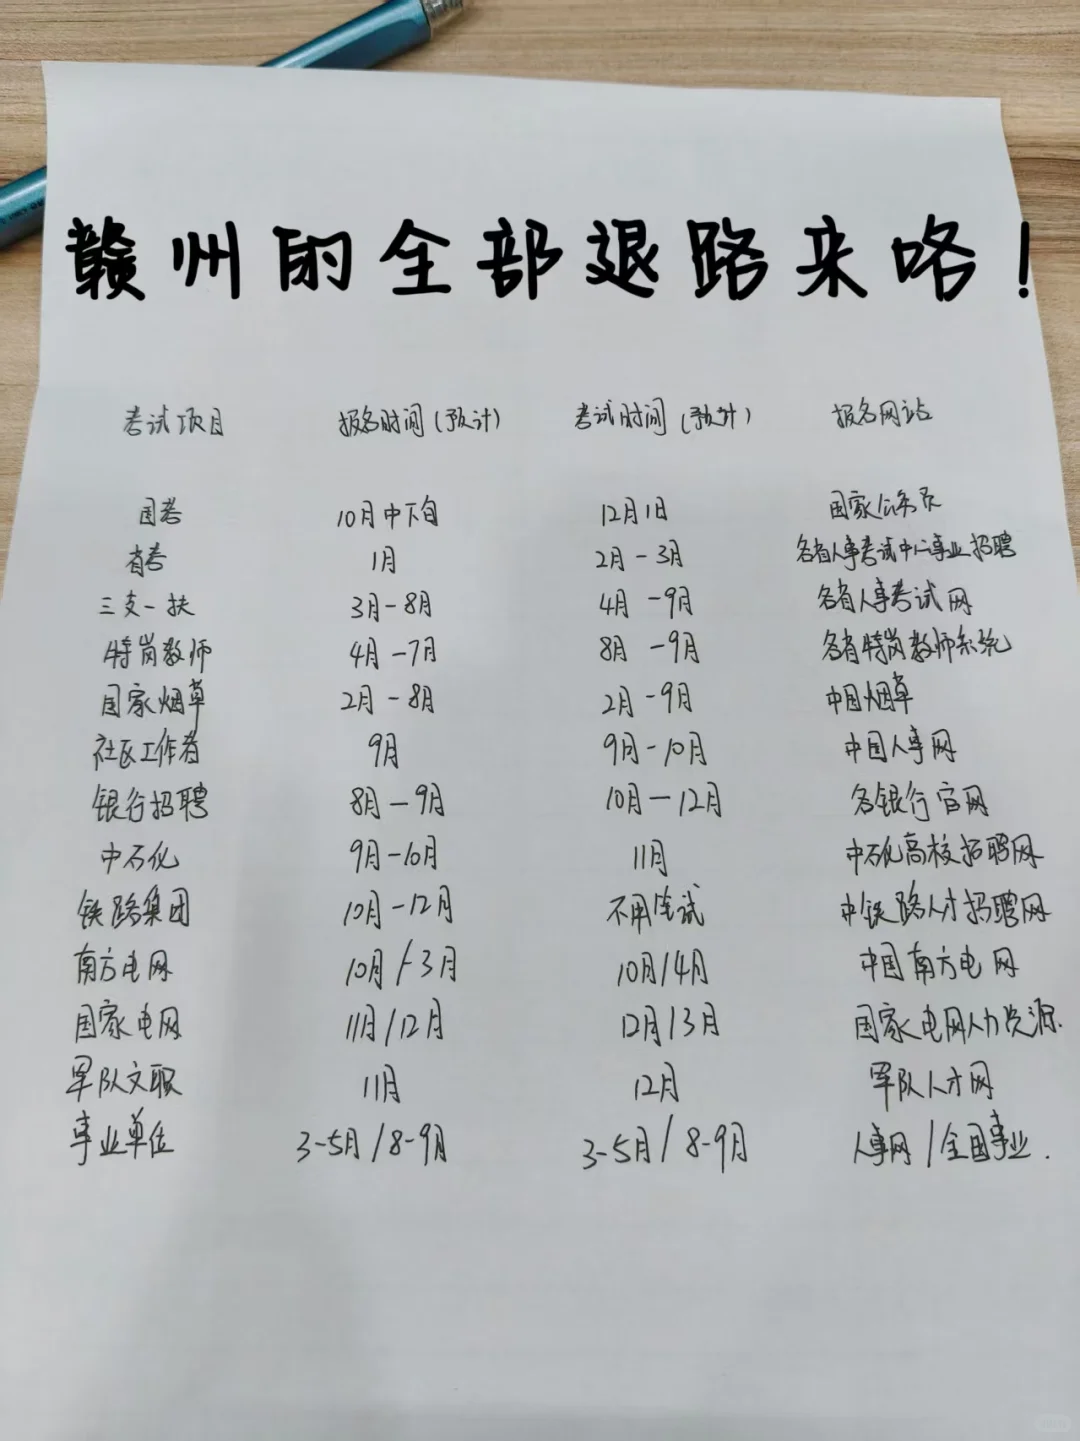 赣州的全部退路来咯！
考试项目 报名时间(预计) 考试时间(预计) 报名网站
国考 10月中下旬 12月1日 国家公务员
省考 1月 2月-3月 各省人事考试中心事业招聘
三支一扶 3月-8月 4月-9月 各省人事考试网
特岗教师 4月-7月 8月-9月 各省特岗教师系统
国家烟草 2月-8月 2月-9月 中国烟草
社区工作者 9月 9月-10月 中国人事网
银行招聘 8月-9月 10月-12月 各银行官网
中石化 9月-10月 11月 中石化高校招聘网
铁路集团 10月-12月 不用笔试 中铁路人才招聘网
南方电网 10月/-3月 10月/4月 中国南方电网
国家电网 11月/12月 12月/3月 国家电网人力资源.
军队文职 11月 12月 军队人才网
事业单位 3-5月/8-9月 3-5月/8-9月 人事网/全国事业.